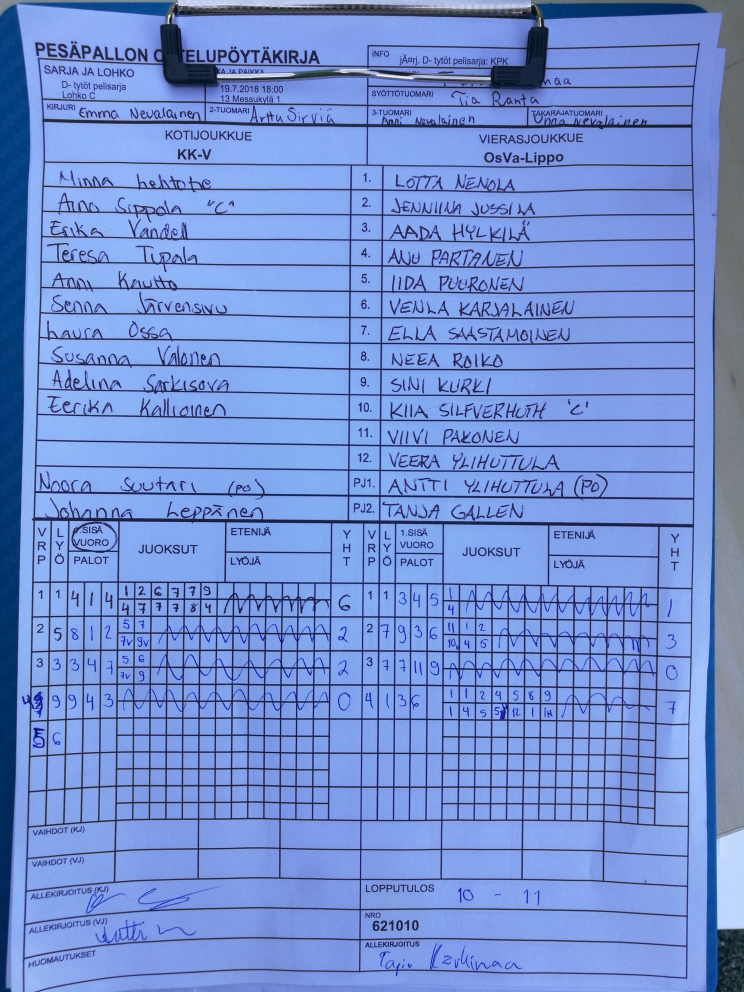 PESÄPALLON OTTELUPÖYTÄKIRJA
INFO jÃ¤rj. D- tytöt pelisarja: KPK
SARJA JA LOHKO
D- tytöt pelisarja
Lohko C
19.7.2018 18:00
13 Messukylä 1
SYÖTTÖTUOMARI Tia Ranta
KIRJURI Emma Nevalainen
2-TUOMARI Arttu Sirviä
3-TUOMARI Anni Nevalainen
TAKARAJATUOMARI Nevalainen
KOTIJOUKKUE VIERASJOUKKUE
KK-V OsVa-Lippo
1. LOTTA NENOLA
Aino Sippola "C" 2. JENNIINA JUSSILA
Erika Vandell 3. AADA HYLKILÄ
Teresa Tupala 4. ANU PARTANEN
Anni Kautto 5. IIDA PUURONEN
Senna Järvensivu 6. VENLA KARJALAINEN
Laura Ossa 7. ELLA SAASTAMOINEN
Susanna Valonen 8. NEEA ROIKO
Adelina Sarkisova 9. SINI KURKI
Eerika Kallioinen 10. KIIA SILFVERHUTH 'C'
11. VIIVI PAKONEN
12. VEERA YLIHUTTULA
Noora Suutari (PO) PJ1. ANTTI YLIHUTTULA (PO)
Johanna Leppänen PJ2. TANJA GALLEN
VRP LYÖ SISÄ VUORO PALOT JUOKSUT ETENIJÄ LYÖJÄ YHT VRP LYÖ 1.SISÄ VUORO PALOT JUOKSUT ETENIJÄ LYÖJÄ YHT
1 1 4 1 4 1 2 6 7 7 9 6 1 1 3 4 5 1 1
4 7 7 7 8 4 4
2 5 8 1 2 5 7 2 2 7 9 3 6 11 1 2 3
7v 9v 10 4 5
3 3 3 4 7 5 6 2 3 7 7 11 9 0
7v 9
9 9 4 3 0 4 1 3 6 1 1 2 4 5 8 9 7
1 4 5 12 1
6
VAIHDOT (KJ)
VAIHDOT (VJ)
ALLEKIRJOITUS (KJ)
LOPPUTULOS 10 - 11
ALLEKIRJOITUS (VJ)
NRO
621010
HUOMAUTUKSET
ALLEKIRJOITUS